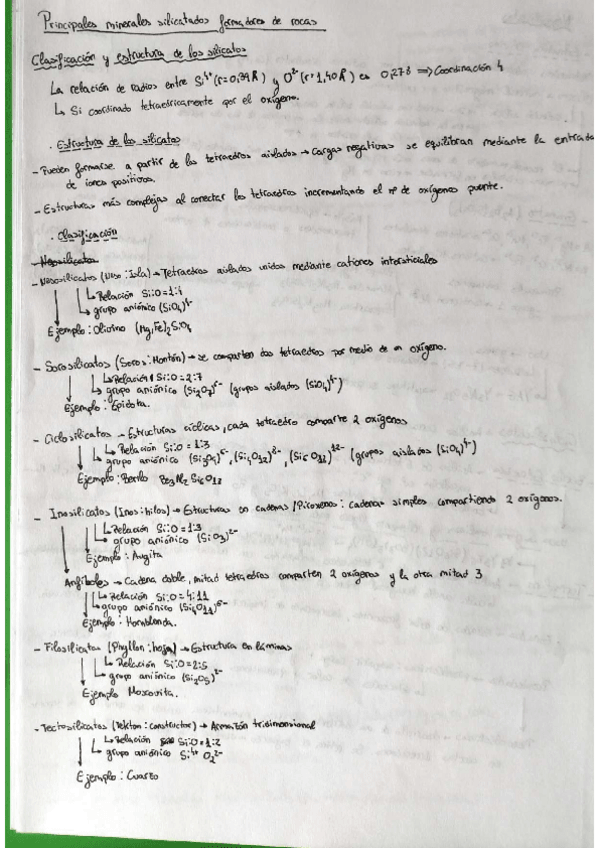 Principales minerales silicatados formadores de rocas
Clasificación y estructura de los silicatos
La relación de radios entre Si⁴⁺ (r=0,39Å) y O²⁻ (r=1,40Å) es 0,278 ⟹ Coordinación 4
↳ Si coordinado tetraédricamente por el oxígeno.
· Estructura de los silicatos
- Pueden formarse a partir de los tetraedros aislados → Cargas negativas se equilibran mediante la entrada
de iones positivos.
- Estructuras más complejas al conectar los tetraedros incrementando el nº de oxígenos puente.
· Clasificación
- Nesosilicatos
- Nesosilicatos (Neso: Isla) → Tetraedros aislados unidos mediante cationes intersticiales
↳ Relación Si:O = 1:4
↳ grupo aniónico (SiO₄)⁴⁻
Ejemplo: Olivino (Mg,Fe)₂SiO₄
- Sorosilicatos (Soros: Montón) → se comparten dos tetraedros por medio de un oxígeno.
↳ Relación Si:O = 2:7
↳ grupo aniónico (Si₂O₇)⁶⁻ (grupos aislados (SiO₄)⁴⁻)
Ejemplo: Epidota.
- Ciclosilicatos → Estructuras cíclicas, cada tetraedro comparte 2 oxígenos
↳ Relación Si:O = 1:3
↳ grupo aniónico (Si₃O₉)⁶⁻, (Si₄O₁₂)⁸⁻, (Si₆O₁₂)¹²⁻ (grupos aislados (SiO₄)⁴⁻)
Ejemplo: Berilo Be₃Al₂Si₆O₁₈
- Inosilicatos (Inos: hilos) → Estructuras en cadenas / Piroxenos: cadenas simples compartiendo 2 oxígenos.
↳ Relación Si:O = 1:3
↳ grupo aniónico (SiO₃)²⁻
Ejemplo: Augita
Anfíboles → Cadena doble, mitad tetraedros comparten 2 oxígenos y la otra mitad 3
↳ Relación Si:O = 4:11
↳ grupo aniónico (Si₄O₁₁)⁶⁻
Ejemplo: Hornblenda.
- Filosilicatos (Phyllon: hoja) → Estructura en láminas
↳ Relación Si:O = 2:5
↳ grupo aniónico (Si₂O₅)²⁻
Ejemplo Moscovita.
- Tectosilicatos (Tekton: constructor) → Armazón tridimensional
↳ Relación Si:O = 1:2
↳ grupo aniónico Si⁴⁺ O₂²⁻
Ejemplo: Cuarzo